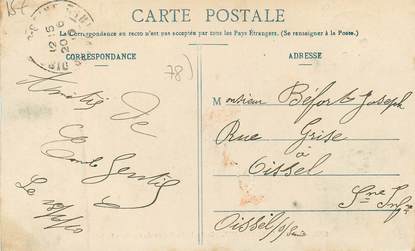 15
CARTE POSTALE
La Correspondance au recto n'est pas acceptée par tous les Pays Etrangers. (Se renseigner à la Poste.)
CORRESPONDANCE
ADRESSE
12 15
20
78)
Amitié de
Gentil
Le
Monsieur Béfort Joseph
Rue Grise
à
Oissel
Sne Infre
Oissel s/ Seine